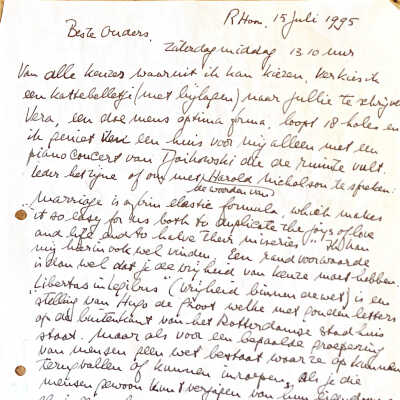 RHoon, 15 juli 1995
Beste Ouders,
Zaterdagmiddag 13.10 uur
Van alle keuzes waaruit ik kan kiezen, verkies ik
een kattebelletje (met bijlagen) naar jullie te schrijven
Vera, een doe mens optima forma, loopt 18 holes en
ik geniet een huis voor mij alleen met een
pianoconcert van Tjaikowski die de ruimte vult.
Ieder het zijne of om met Harold Nicholson te spreken:
de woorden van
"Marriage is a firm elastic formula, which makes
it so easy for us both to duplicate the joys of love
and life and to halve their miseries". Ik kan
mij hierin ook wel vinden. Een randvoorwaarde
is dan wel dat je de vrijheid van keuze moet hebben.
"Libertas in legibus" (vrijheid binnen de wet) is een
stelling van Hugo de Groot welke met gouden letters
op de buitenkant van het Rotterdamse stadhuis
staat. Maar als voor een bepaalde groepering
van mensen geen wet bestaat waar ze op kunnen
terugvallen of kunnen inroepen, als je die
mensen gewoon kunt verjagen van hun